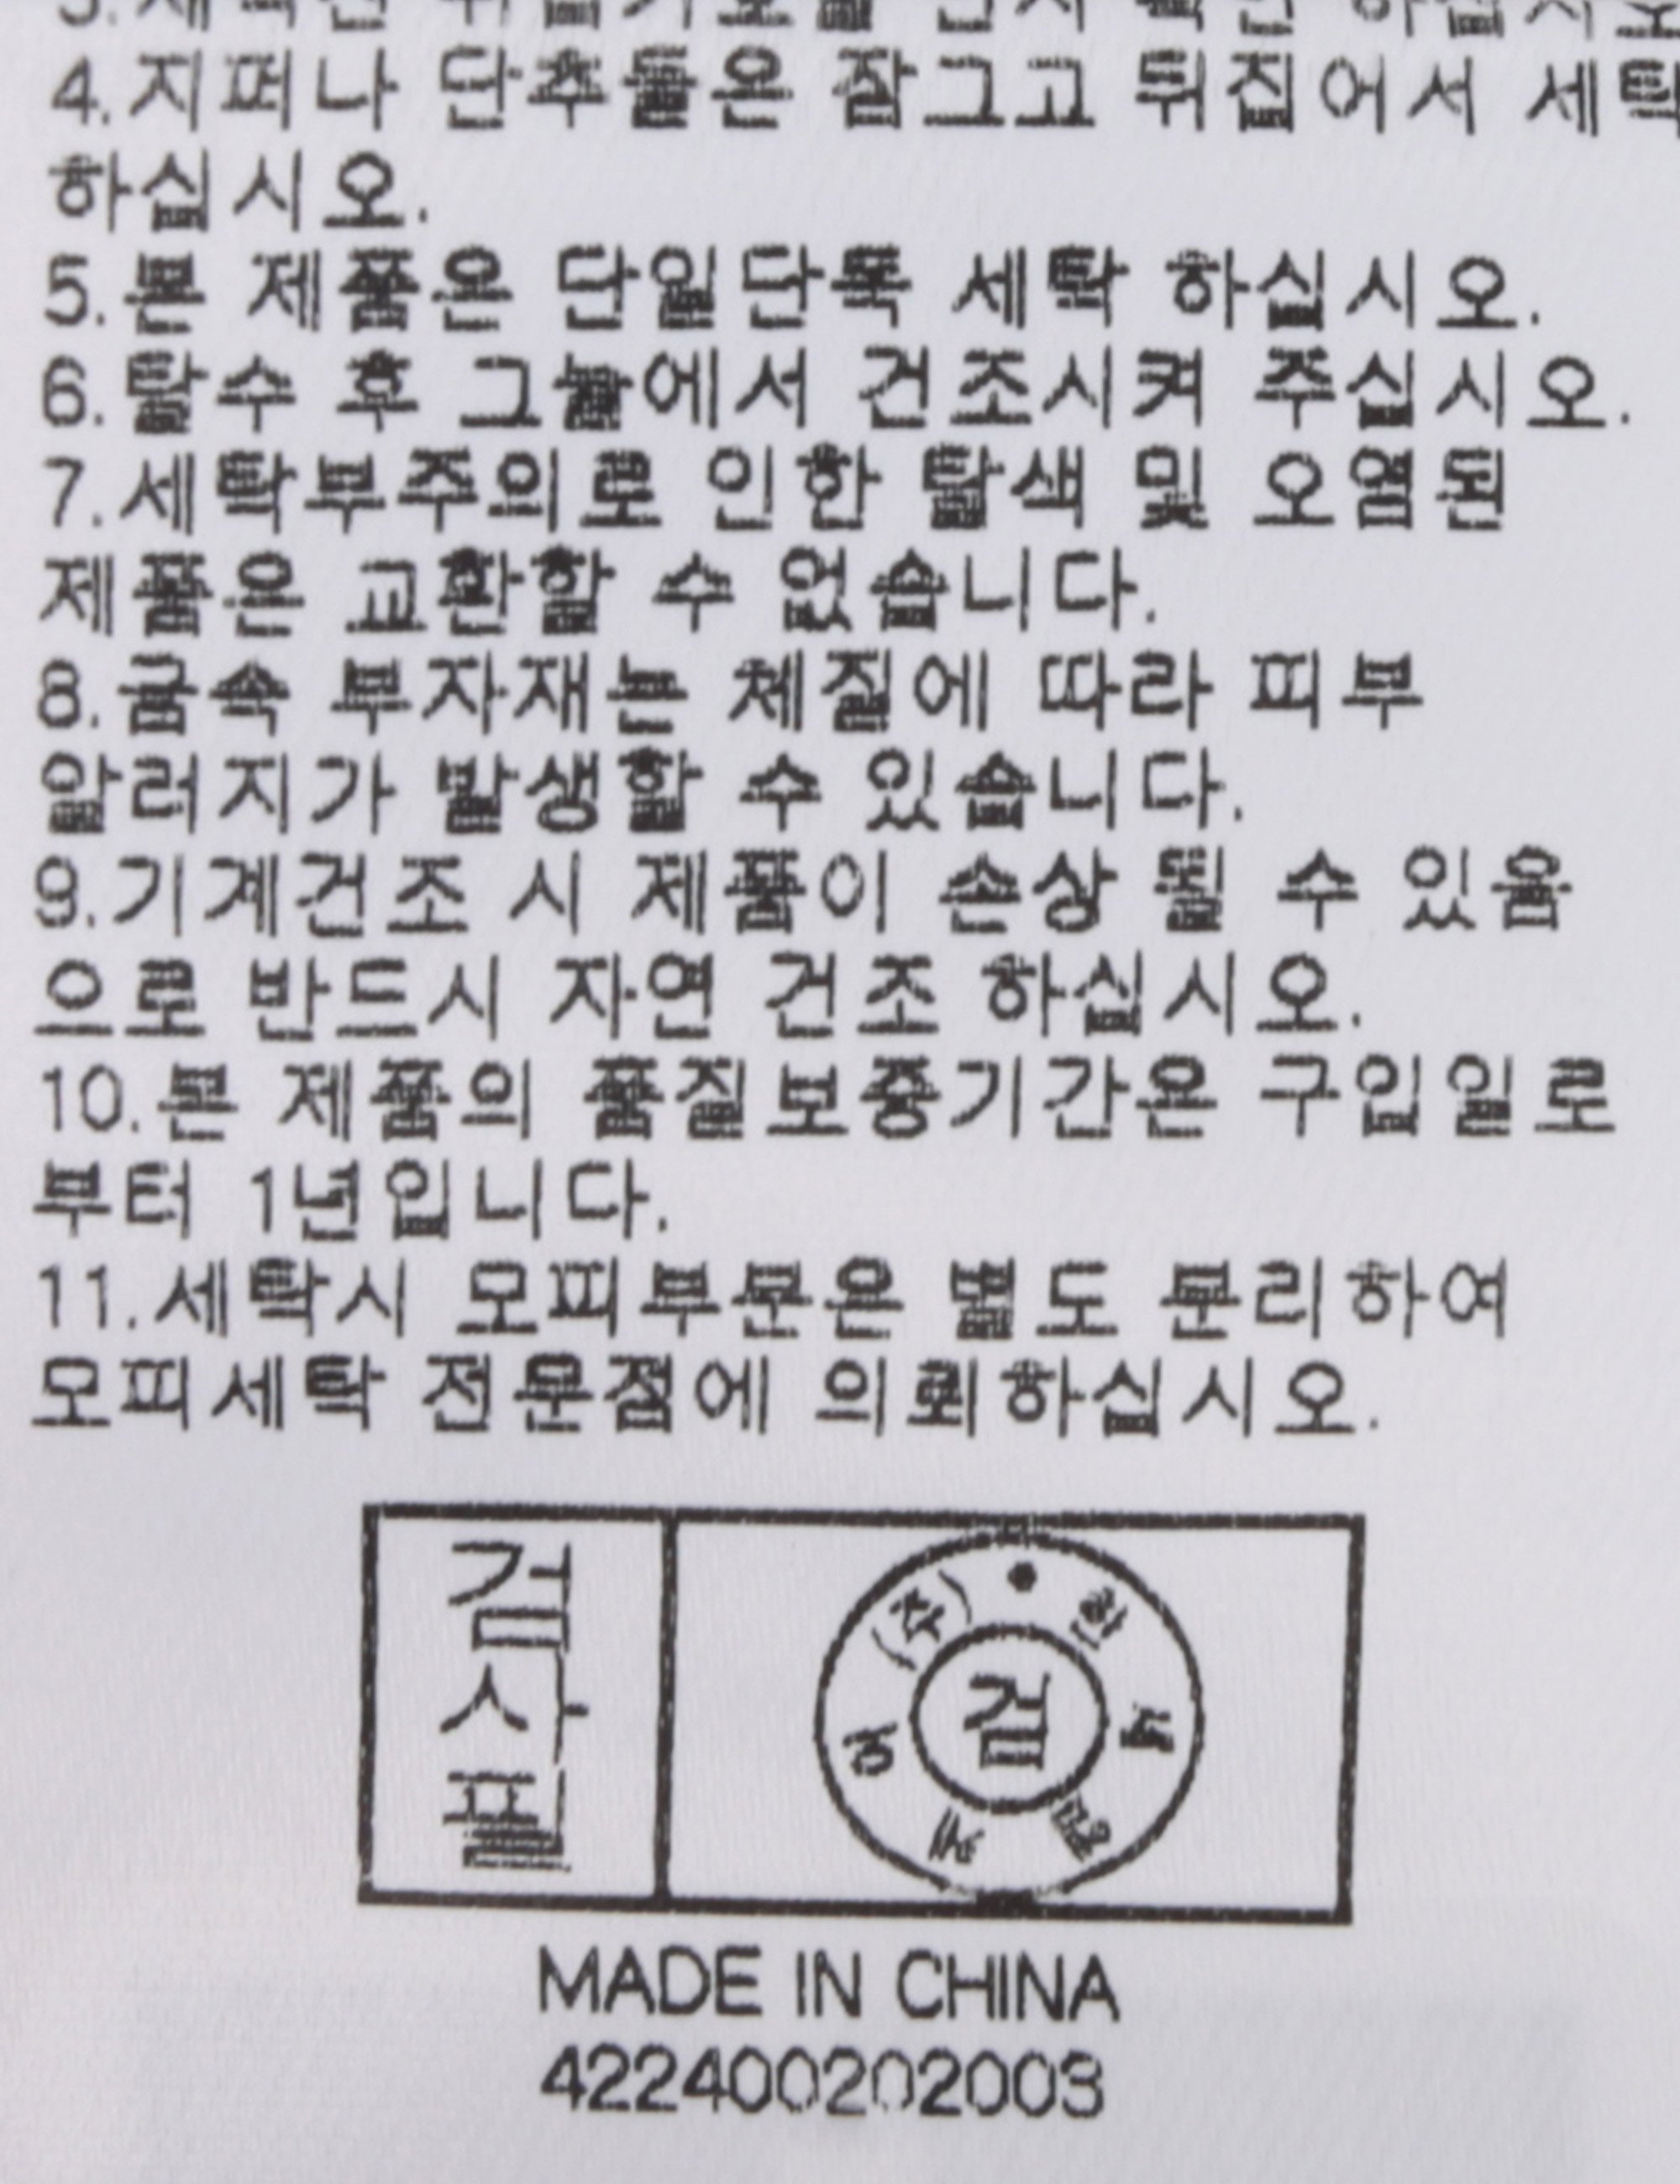 4.지퍼나 단추들은 잠그고 뒤집어서 세탁
하십시오.
5.본 제품은 단일단독 세탁 하십시오.
6.탈수 후 그늘에서 건조시켜 주십시오.
7.세탁부주의로 인한 탈색 및 오염된
제품은 교환할 수 없습니다.
8.금속 부자재는 체질에 따라 피부
알러지가 발생할 수 있습니다.
9.기계건조 시 제품이 손상 될 수 있음
으로 반드시 자연 건조 하십시오.
10.본 제품의 품질보증기간은 구입일로
부터 1년입니다.
11.세탁시 모피부분은 별도 분리하여
모피세탁 전문점에 의뢰하십시오.
검사필
(주)
검
MADE IN CHINA
422400202003